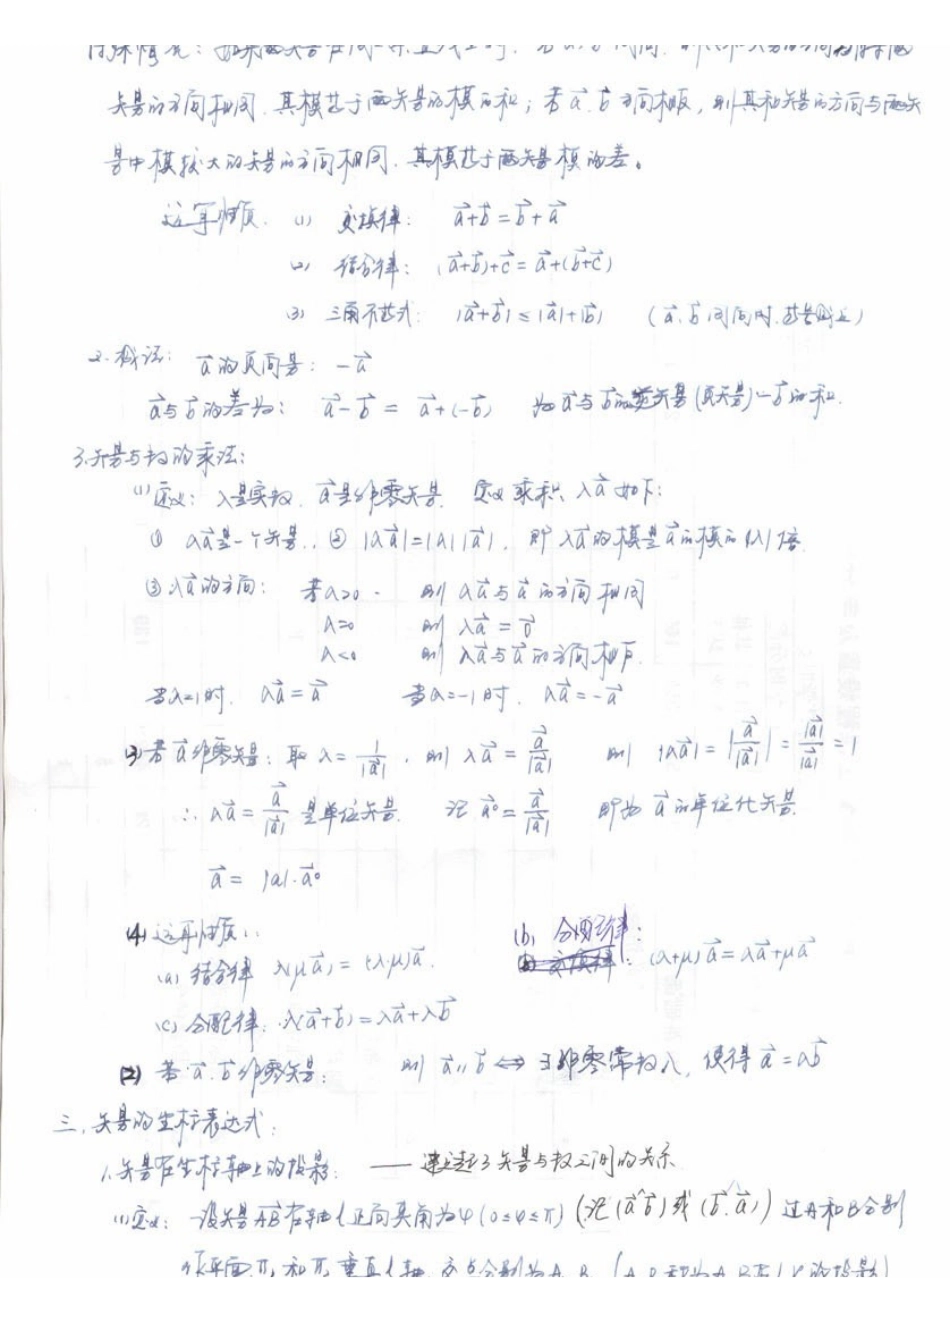 特殊情况：如果两矢量在同一条直线上时，若 a⃗, b⃗ 同向，则
矢量的方向相同，其模等于两矢量的模的和；若 a⃗, b⃗ 方向相反，则其和矢量的方向与两矢
量中模较大的矢量的方向相同，其模等于两矢量模的差。
运算性质. (1) 交换律： a⃗+b⃗=b⃗+a⃗
(2) 结合律： (a⃗+b⃗)+c⃗=a⃗+(b⃗+c⃗)
(3) 三角不等式： |a⃗+b⃗|≤|a⃗|+|b⃗| (a⃗, b⃗ 同向时，等号成立)
2. 减法： a⃗ 的负向量： -a⃗
a⃗ 与 b⃗ 的差为： a⃗-b⃗ = a⃗+(-b⃗) 为 a⃗ 与 b⃗ 的逆矢量(负矢量)-b⃗ 的和.
3. 矢量与数的乘法:
(1) 定义：λ是实数，a⃗是非零矢量. 定义乘积 λa⃗ 如下:
① λa⃗是一个矢量.. ② |λa⃗|=|λ||a⃗|, 即 λa⃗ 的模是 a⃗ 的模的 |λ| 倍
③ λa⃗ 的方向： 若λ>0. 则 λa⃗ 与 a⃗ 的方向相同
λ=0 则 λa⃗ = 0⃗
λ<0 则 λa⃗ 与 a⃗ 的方向相反.
当λ=1时. λa⃗=a⃗ 当λ=-1时. λa⃗=-a⃗
(3) 若 a⃗ 非零矢量：取 λ=1/|a⃗|, 则 λa⃗ = a⃗/|a⃗| 则 |λa⃗| = |a⃗/|a⃗|| = |a⃗|/|a⃗| = 1
∴ λa⃗ = a⃗/|a⃗| 是单位矢量. 记 a⃗° = a⃗/|a⃗| 即为 a⃗ 的单位化矢量.
a⃗ = |a|·a⃗°
(4) 运算性质： (b) 分配律：
(a) 结合律 λ(μa⃗)=(λμ)a⃗. (λ+μ)a⃗=λa⃗+μa⃗
(c) 分配律：λ(a⃗+b⃗)=λa⃗+λb⃗
(2) 若 a⃗, b⃗ 非零矢量： 则 a⃗∥b⃗ ⟺ ∃非零常数λ, 使得 a⃗=λb⃗
三. 矢量的坐标表达式:
1. 矢量在坐标轴上的投影: —— 建立起了矢量与数之间的关系
(1) 定义：设矢量AB⃗在轴l正向夹角为φ(0≤φ≤π) (记(a⃗^b⃗)或(b⃗^a⃗)) 过A和B分别
作平面π₁和π₂垂直l轴，交点分别为